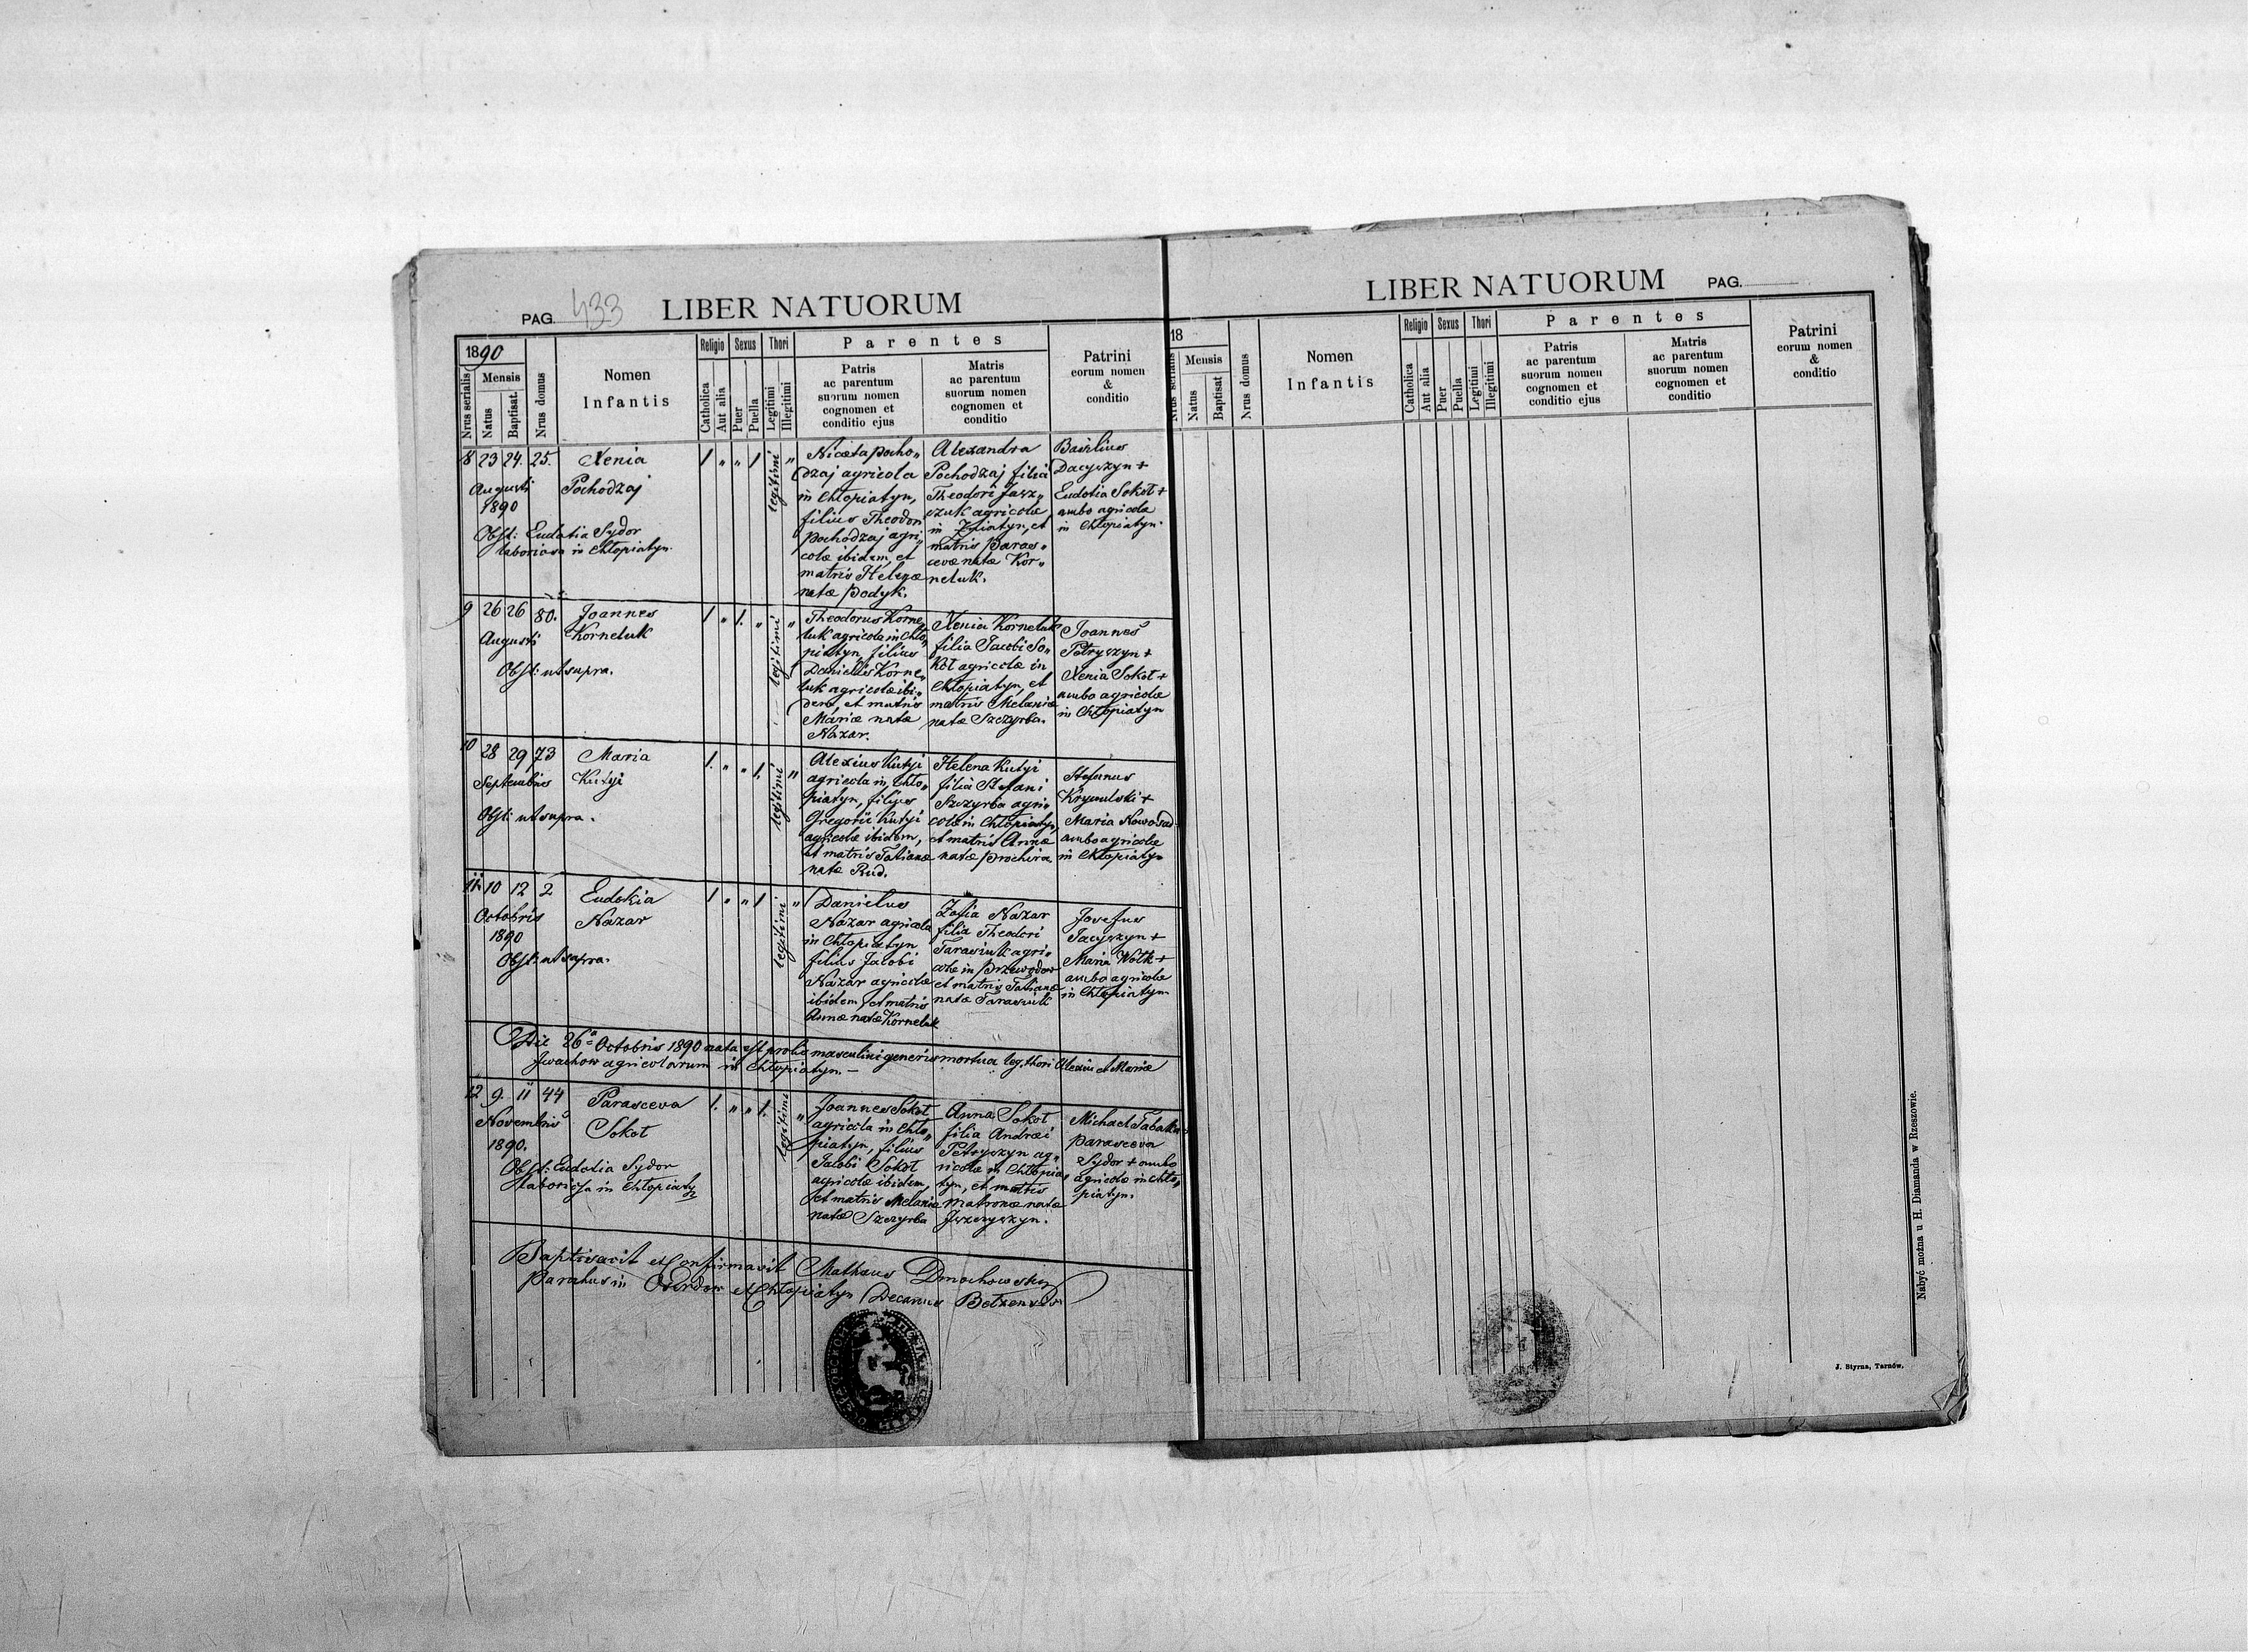 PAG. 433 LIBER NATUORUM
1890
Nrus serialis
Mensis
Natus
Baptisat.
Nrus domus
Nomen
Infantis
Religio
Catholica
Aut alia
Sexus
Puer
Puella
Thori
Legitimi
Illegitimi
Parentes
Patris
ac parentum
suorum nomen
cognomen et
conditio ejus
Matris
ac parentum
suorum nomen
cognomen et
conditio
Patrini
eorum nomen
&
conditio
8 23 24. 25.
Augusti
1890
Obst: Eudotia Sydor
laboriosa in Chłopiatyn.
Xenia
Pochodzaj
1 " " 1 legitimi "
Niceta Pocho„
dzaj agricola
in Chłopiatyn,
filius Theodori
Pochodzaj agri„
colæ ibidem, et
matris Helenæ
natæ Dodyk.
Alexandra
Pochodzaj filia
Theodori Jasz„
czuk agricolæ
in Żniatyn, et
matris Paras„
cevæ natæ Kor„
neluk.
Basilius
Dacyszyn +
Eudotia Sokoł +
ambo agricolæ
in Chłopiatyn.
9 26 26 80.
Augusti
Obst: ut supra.
Joannes
Korneluk
1 " 1. " legitimi "
Theodorus Korne„
luk agricola in Chło„
piatyn, filius
Danielis Korne„
luk agricolæ ibi„
dem, et matris
Mariæ natæ
Nazar.
Xenia Korneluk
filia Jacobi So„
koł agricolæ in
Chłopiatyn, et
matris Melaniæ
natæ Szczyrba.
Joannes
Petryszyn +
Xenia Sokoł +
ambo agricolæ
in Chłopiatyn
10 28 29 73
Septembris
Obst: ut supra.
Maria
Kutyi
1. " " 1. legitimi "
Alexius Kutyi
agricola in Chło„
piatyn, filius
Gregorii Kutyi
agricolæ ibidem,
et matris Tatianæ
natæ Rud.
Helena Kutyi
filia Stefani
Szczyrba agri„
colæ in Chłopiatyn,
et matris Annæ
natæ Prochira
Stefanus
Krywulski +
Maria Nowosad
ambo agricolæ
in Chłopiatyn
11. 10 12 2
Octobris
1890
Obst: ut supra.
Eudokia
Nazar
1 " " 1 legitimi "
Danielus
Nazar agricola
in Chłopiatyn
filius Jacobi
Nazar agricolæ
ibidem, et matris
Annæ natæ Korneluk
Zofia Nazar
filia Theodori
Tarasiuk agri„
colæ in Przewodow
et matris Tatianæ
natæ Tarasiuk
Josefus
Jacyszyn +
Maria Wołk +
ambo agricolæ
in Chłopiatyn.
Die 26ª Octobris 1890 nata est prolis masculini generis mortua leg. thori Alexii et Mariæ
Iwachow agricolarum in Chłopiatyn. —
12 9. 11 44
Novembris
1890.
Obst: Eudotia Sydor
laboriosa in Chłopiatyn
Parasceva
Sokoł
1. " " 1. legitimi "
Joannes Sokoł
agricola in Chło„
piatyn, filius
Jacobi Sokoł
agricolæ ibidem,
et matris Melaniæ
natæ Szczyrba
Anna Sokoł
filia Andræi
Petryszyn ag„
ricolæ in Chłopia„
tyn, et matris
Matronæ natæ
Iszczyszyn.
Michael Tabaka
Parasceva
Sydor + ambo
agricolæ in Chło„
piatyn.
Baptisavit et Confirmavit Matheus Dmochowsky
Parochus in Oserdow et Chłopiatyn Decanus Bełzensis
LIBER NATUORUM PAG.
18
Nrus serialis
Mensis
Natus
Baptisat
Nrus domus
Nomen
Infantis
Religio
Catholica
Aut alia
Sexus
Puer
Puella
Thori
Legitimi
Illegitimi
Parentes
Patris
ac parentum
suorum nomen
cognomen et
conditio ejus
Matris
ac parentum
suorum nomen
cognomen et
conditio
Patrini
eorum nomen
&
conditio
Nabyć można u H. Diamanda w Rzeszowie.
J. Styrna, Tarnów.